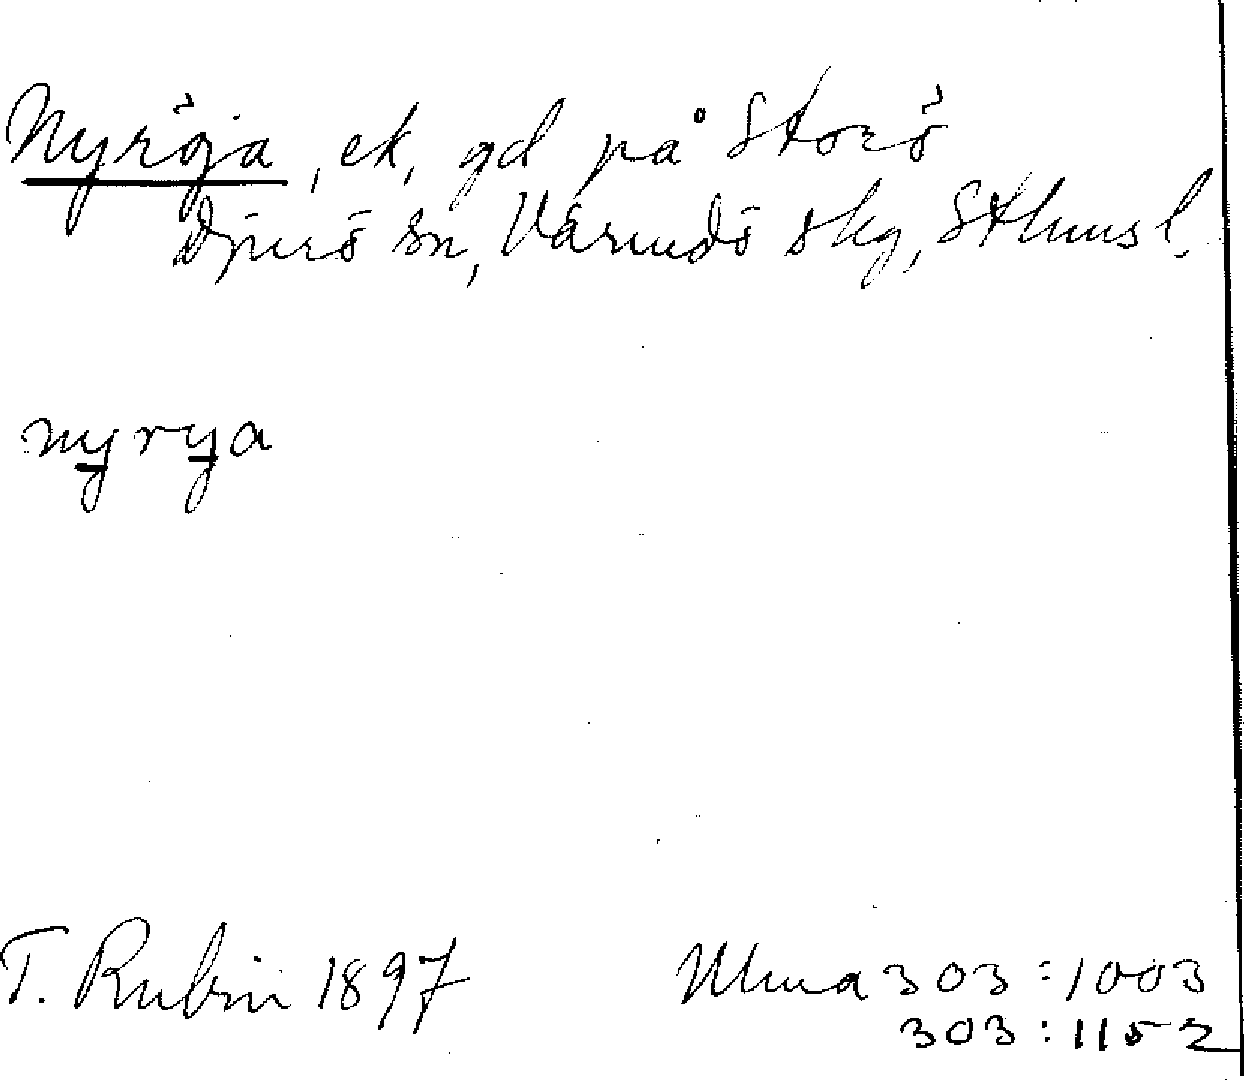 Nyröja, ek, gd på Storö
Djurö sn, Värmdö skg, Sthms l.
nyrya
T. Rubin 1897
Ulma 303:1003
303:1152